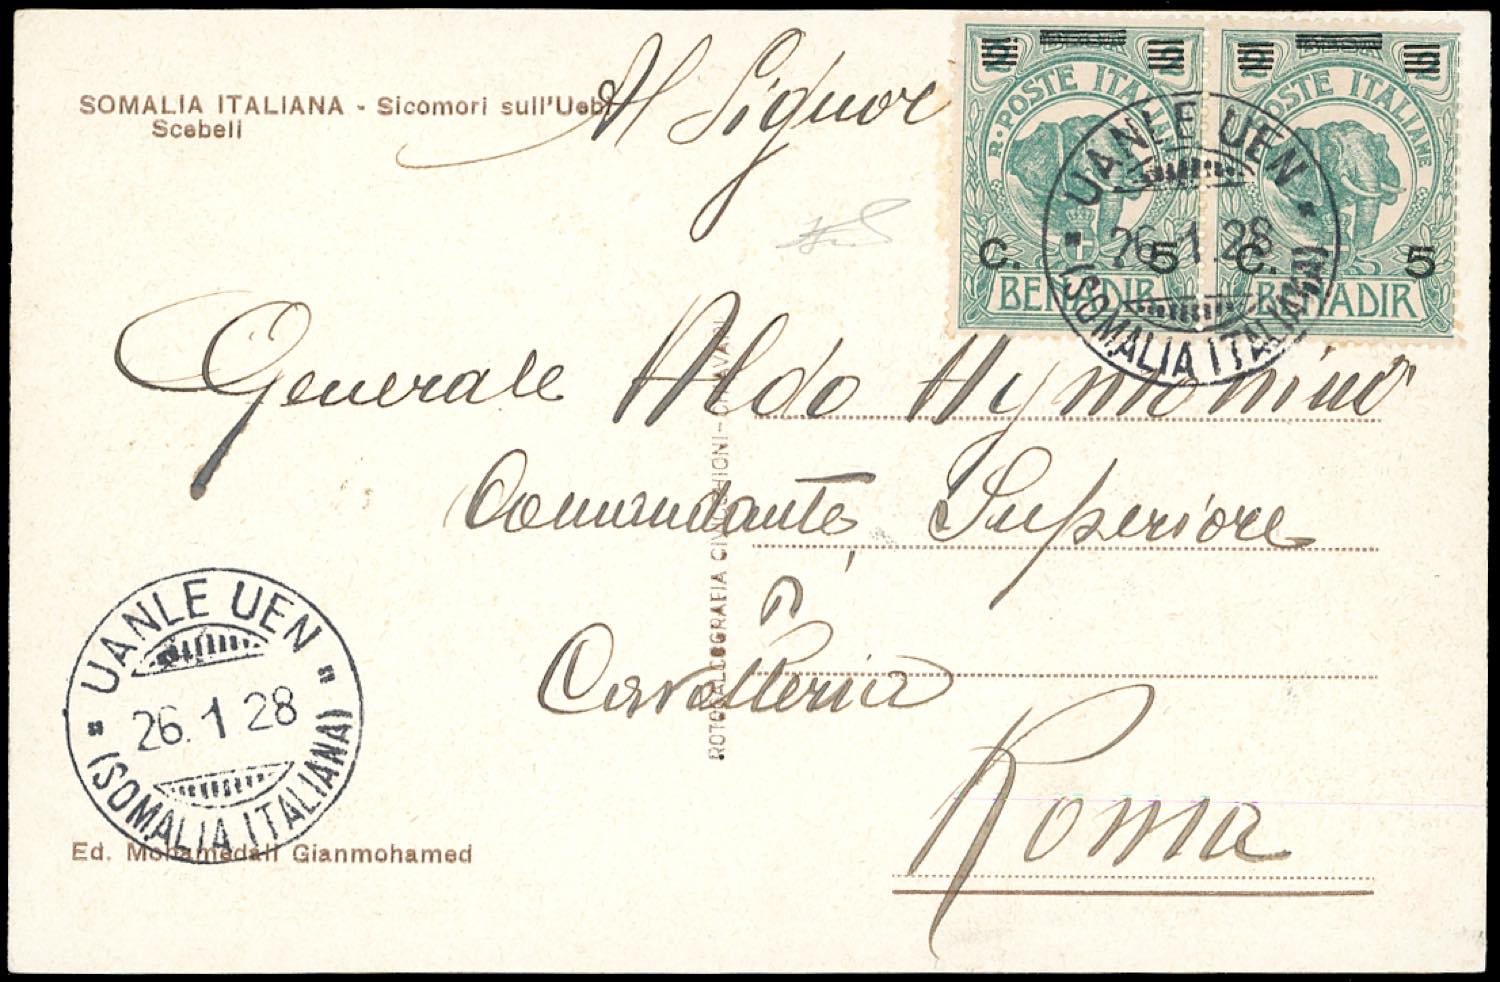 SOMALIA ITALIANA - Sicomori sull'Uebi
Scebeli
Al Signor
R. POSTE ITALIANE
C. 5
BENADIR
POSTE ITALIANE
C. 5
BENADIR
UANLE UEN
26.1.28
(SOMALIA ITALIANA)
Generale Aldo Aymonino
Comandante Superiore
Cavalleria
Roma
ROTOCALCOGRAFIA CIVICCHIONI-CHIAVARI
UANLE UEN
26.1 28
(SOMALIA ITALIANA)
Ed. Mohamedali Gianmohamed